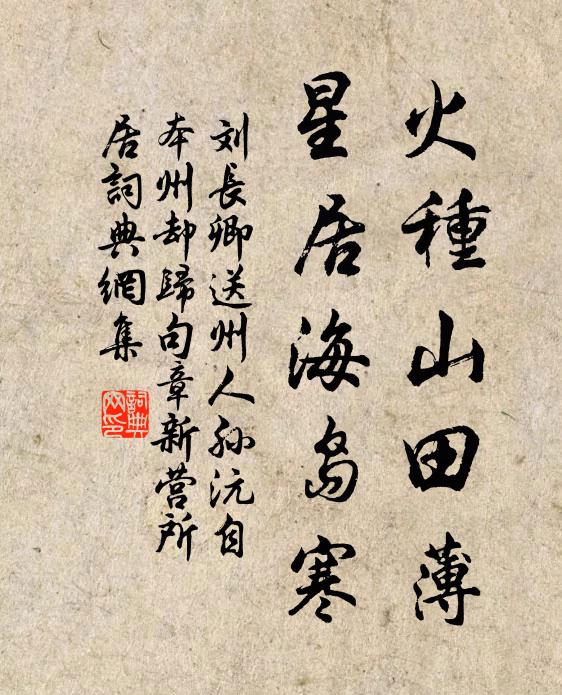 火種山田薄
星居海島寒
刘長卿送州人孙沅自
本州却歸句章新营所
居詞典網集
詞典网印